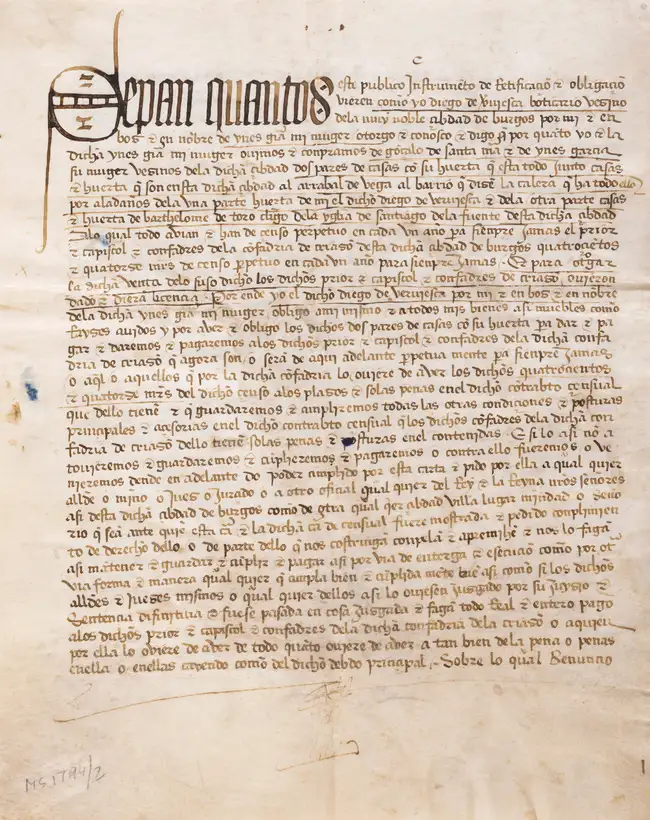 Sepan quantos este publico Instrumēto de Retificaciō & obligaciō
vieren como yo diego de viruiesca boticario vezino
dela muy noble çibdad de burgos por mi & en
boz & en nōbre de ynes grā mi muger otorgo & conosco & digo q̄ por quāto yo & la
dicha ynes grā mi muger ouimos & conpramos de gōçalo de santa mā & de ynes garcia
su muger vezinos dela dicha çibdad dos pares de casas cō su huerta q̄ esta todo junto casas
& huerta q̄ son ensta dicha çibdad al arraual de vega al barrio q̄ dizē la calera q̄ ha todo ello
por aladaños dela vna parte huerta de mi el dicho diego de veruiesca & dela otra parte casas
& huerta de barthelome de toro clīgo dela ygl̄ia de santiago dela fuente desta dicha çibdad
Lo qual todo avian & han de censo perpetuo en cada vn año pa sienpre jamas el prior
& capiscol & confadres dela cōfadria de criazō desta dicha çibdad de burgos quatroçiētos
& quatorze mr̄s de censo perpetuo en cada vn año para sienpre jamas. E para otōgar
la dicha venta delo suso dicho los dichos prior & capiscol & confadres de criazō ouieron
dado & dierā liçençia. Por ende yo el dicho diego de veruiesca por mi & en boz & en nōbre
dela dicha ynes grā mi muger obligo ami mismo & a todos mis bienes asi muebles como
Rayzes auidos y por aver & obligo los dichos dos pares de casas cō su huerta pa dar & pa
gar & daremos & pagaremos alos dichos prior & capiscol & confadres dela dicha confa
dria de criazō q̄ agora son o serā de aqui adelante perpetua mente pa sienpre jamas
o aq̄l o aquellos q̄ por la dicha cōfadria lo ouiere de aver los dichos quatroçientos
& quatorze mr̄s del dicho censo alos plazos & solas penas enel dicho cōtrabto çensual
que dello tienē & q̄ guardaremos & cunpliremos todas las otras condiçiones & posturas
prinçipales & açesorias enel dicho contrabto çensual q̄ los dichos cōfadres dela dicha con
fadria de criazō dello tienē solas penas & posturas enel contenidas. E si lo asi nō a
touieremos & guardaremos & cūplieremos & pagaremos o contra ello fueremos o ve
nieremos dende en adelante do poder cunplido por esta carta & pido por ella a qual quier
allde o mīno o juez o jurado o a otro ofiçial qual quier del Rey & la Reyna nr̄os señores
asi desta dicha çibdad de burgos como de otra qual q̄er çibdad villa lugar mīndad o seño
rio q̄ seā ante quiē esta cr̄a & la dicha cr̄a de çensual fuere mostrada & pedido conplimien
to de derecho dello o de parte dello q̄ nos costringā conpelā & apremiē & nos lo fagā
asi mātener & guardar & cūplir & pagar asi por via de entrega & esecuçiō como por otr̄
via forma & manera qual quier q̄ cunpla bien & cūplida mēte bie asi como si los dichos
alldes & juezes mismos o qual quier dellos asi lo ouiesen juzgado por su juyzio &
sentençia difinitiua & fuese pasada en cosa juzgada & fagā todo Real & entero pago
alos dichos prior & capiscol & confadres dela dicha confadria dela criazō o aquien
por ella lo oviere de aver de todo quāto oviere de aver a tan bien dela pena o penas
enella o enellas cayendo como del dicho debdo prinçipal. Sobre lo qual Renunçio
MS 1794/2